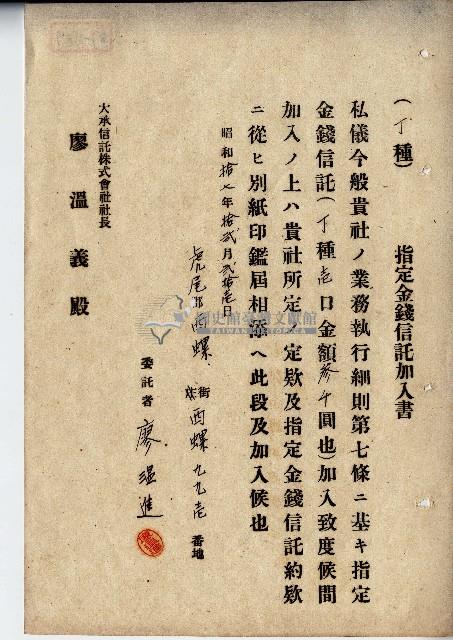 (丁種)
指定金錢信託加入書
私儀今般貴社ノ業務執行細則第七條ニ基キ指定
金錢信託(丁種壱口金額參千圓也)加入致度候間
加入ノ上ハ貴社所定ノ定欵及指定金錢信託約欵
ニ從ヒ別紙印鑑屆相添ヘ此段及加入候也
昭和拾七年拾貳月貳拾壱日
虎尾郡西螺街西螺九九壱番地
委託者 廖溫進
大承信託株式會社社長
廖溫義殿
國史館臺灣文獻館
TAIWAN HISTORICA